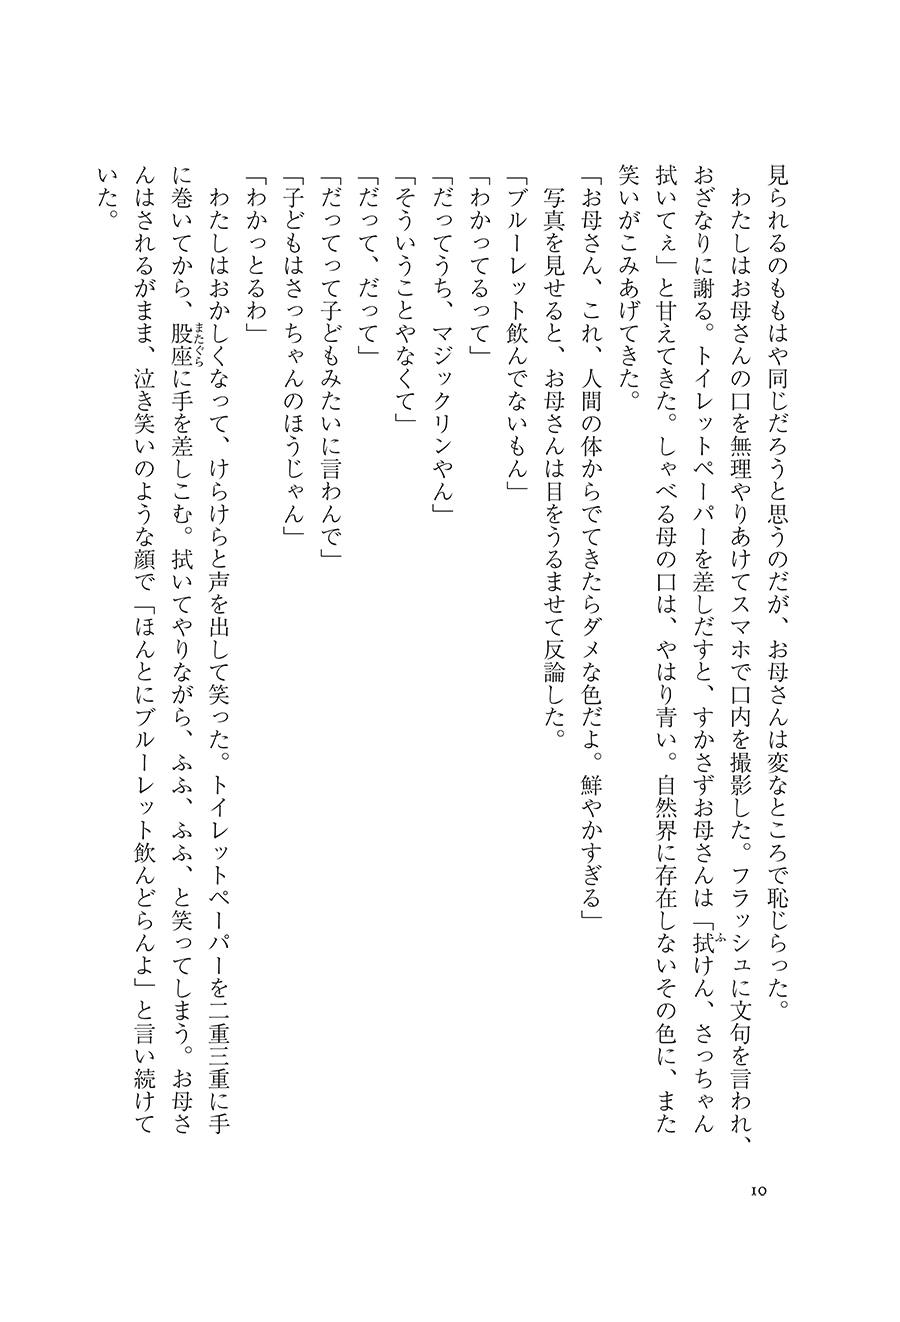 見られるのももはや同じだろうと思うのだが、お母さんは変なところで恥じらった。
　わたしはお母さんの口を無理やりあけてスマホで口内を撮影した。フラッシュに文句を言われ、
おざなりに謝る。トイレットペーパーを差しだすと、すかさずお母さんは「拭けん、さっちゃん
ふ
拭いてぇ」と甘えてきた。しゃべる母の口は、やはり青い。自然界に存在しないその色に、また
笑いがこみあげてきた。
「お母さん、これ、人間の体からでてきたらダメな色だよ。鮮やかすぎる」
　写真を見せると、お母さんは目をうるませて反論した。
「ブルーレット飲んでないもん」
「わかってるって」
「だってうち、マジックリンやん」
「そういうことやなくて」
「だって、だって」
「だってって子どもみたいに言わんで」
「子どもはさっちゃんのほうじゃん」
「わかっとるわ」
　わたしはおかしくなって、けらけらと声を出して笑った。トイレットペーパーを二重三重に手
に巻いてから、股座に手を差しこむ。拭いてやりながら、ふふ、ふふ、と笑ってしまう。お母さ
またぐら
んはされるがまま、泣き笑いのような顔で「ほんとにブルーレット飲んどらんよ」と言い続けて
いた。
10